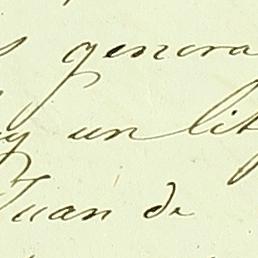 genera
un lit
Juan de